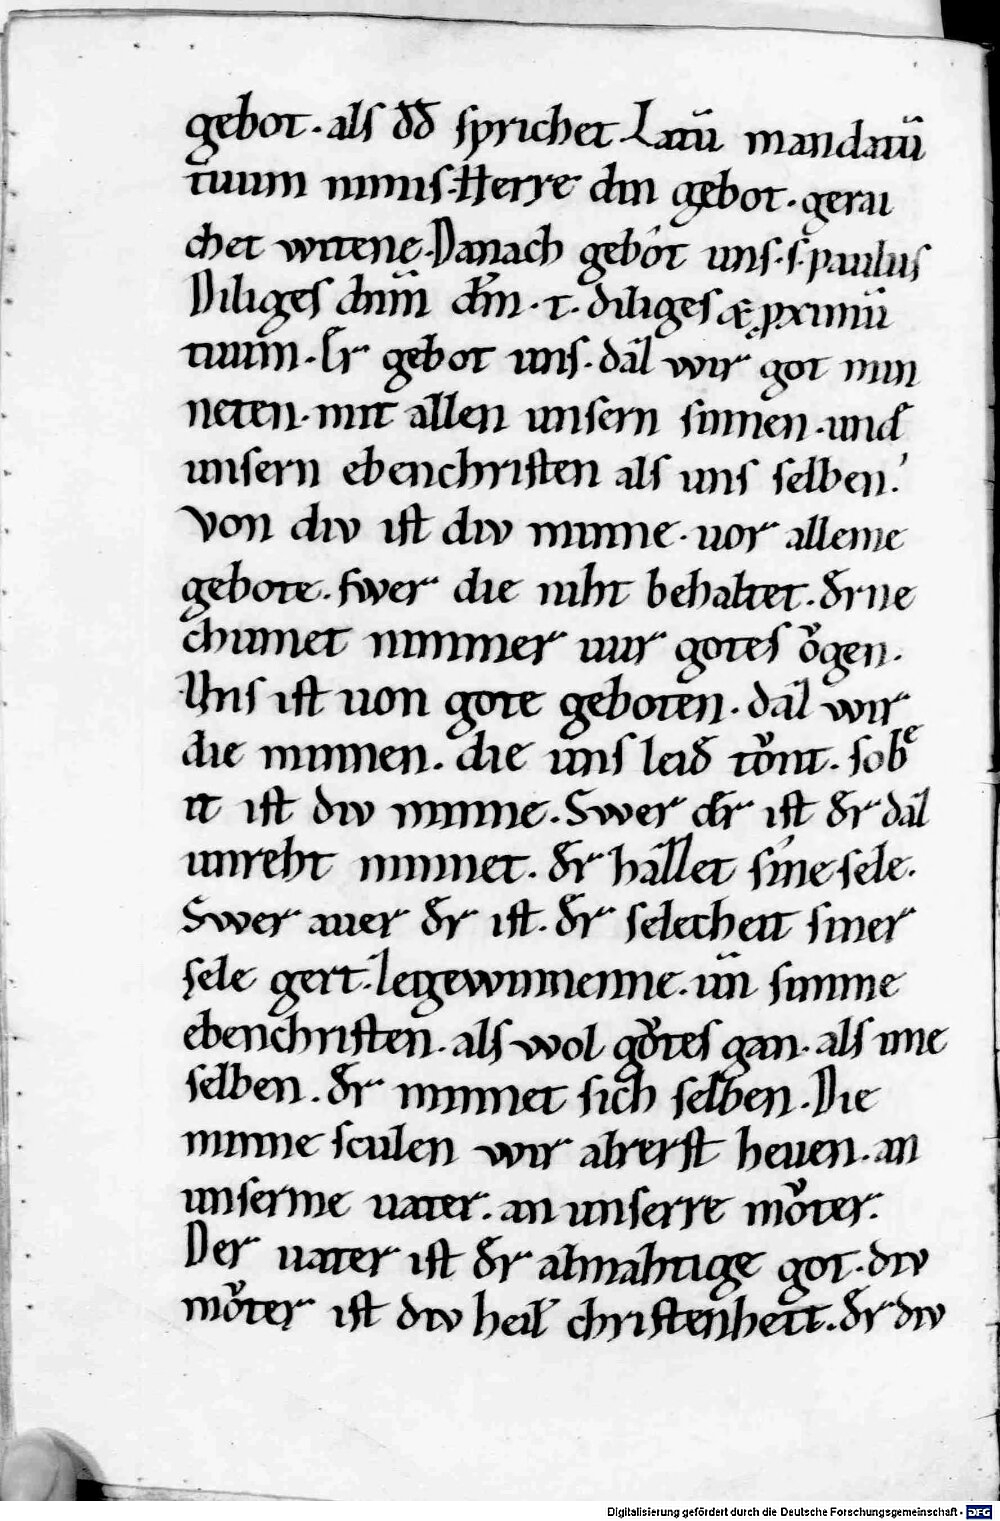 gebot · als dd̄ sprichet Latū mandatū
tuum nimis · Herre din gebot · gerai
chet witene · Danach gebôt uns · s · paulus
Diliges dnm̄ dm̄ · τ · diliges & pximū
tuum · Er gebot uns · daͤl wir got min
neten · mit allen unsern sinnen · und
unsern ebenchristen als uns selben.
Von div ist div minne · uor alleme
gebote · swer die niht behaltet · đrne
chumet nimmer uur gotes oͮgen ·
Uns ist uon gote geboten · daͤl wir
die minnen · die uns leid toͮnt · sobͤ
it ist div minne · Swer d̄r ist đr daͤl
unreht minnet · đr haͤllet sine sele ·
Swer auer đr ist · đr selecheit siner
sele gert · legewinnenne · un̄ sinime
ebenchristen · als wol goͮtes gan · als ime
selben · đr minnet sich selben · Die
minne sculen wir alrerst heuen · an
unserme uater · an unserre moͮter ·
Der uater ist đr almahtige got · div
moͮter ist div heil̄ christenheit · đr div
Digitalisierung gefördert durch die Deutsche Forschungsgemeinschaft - DFG